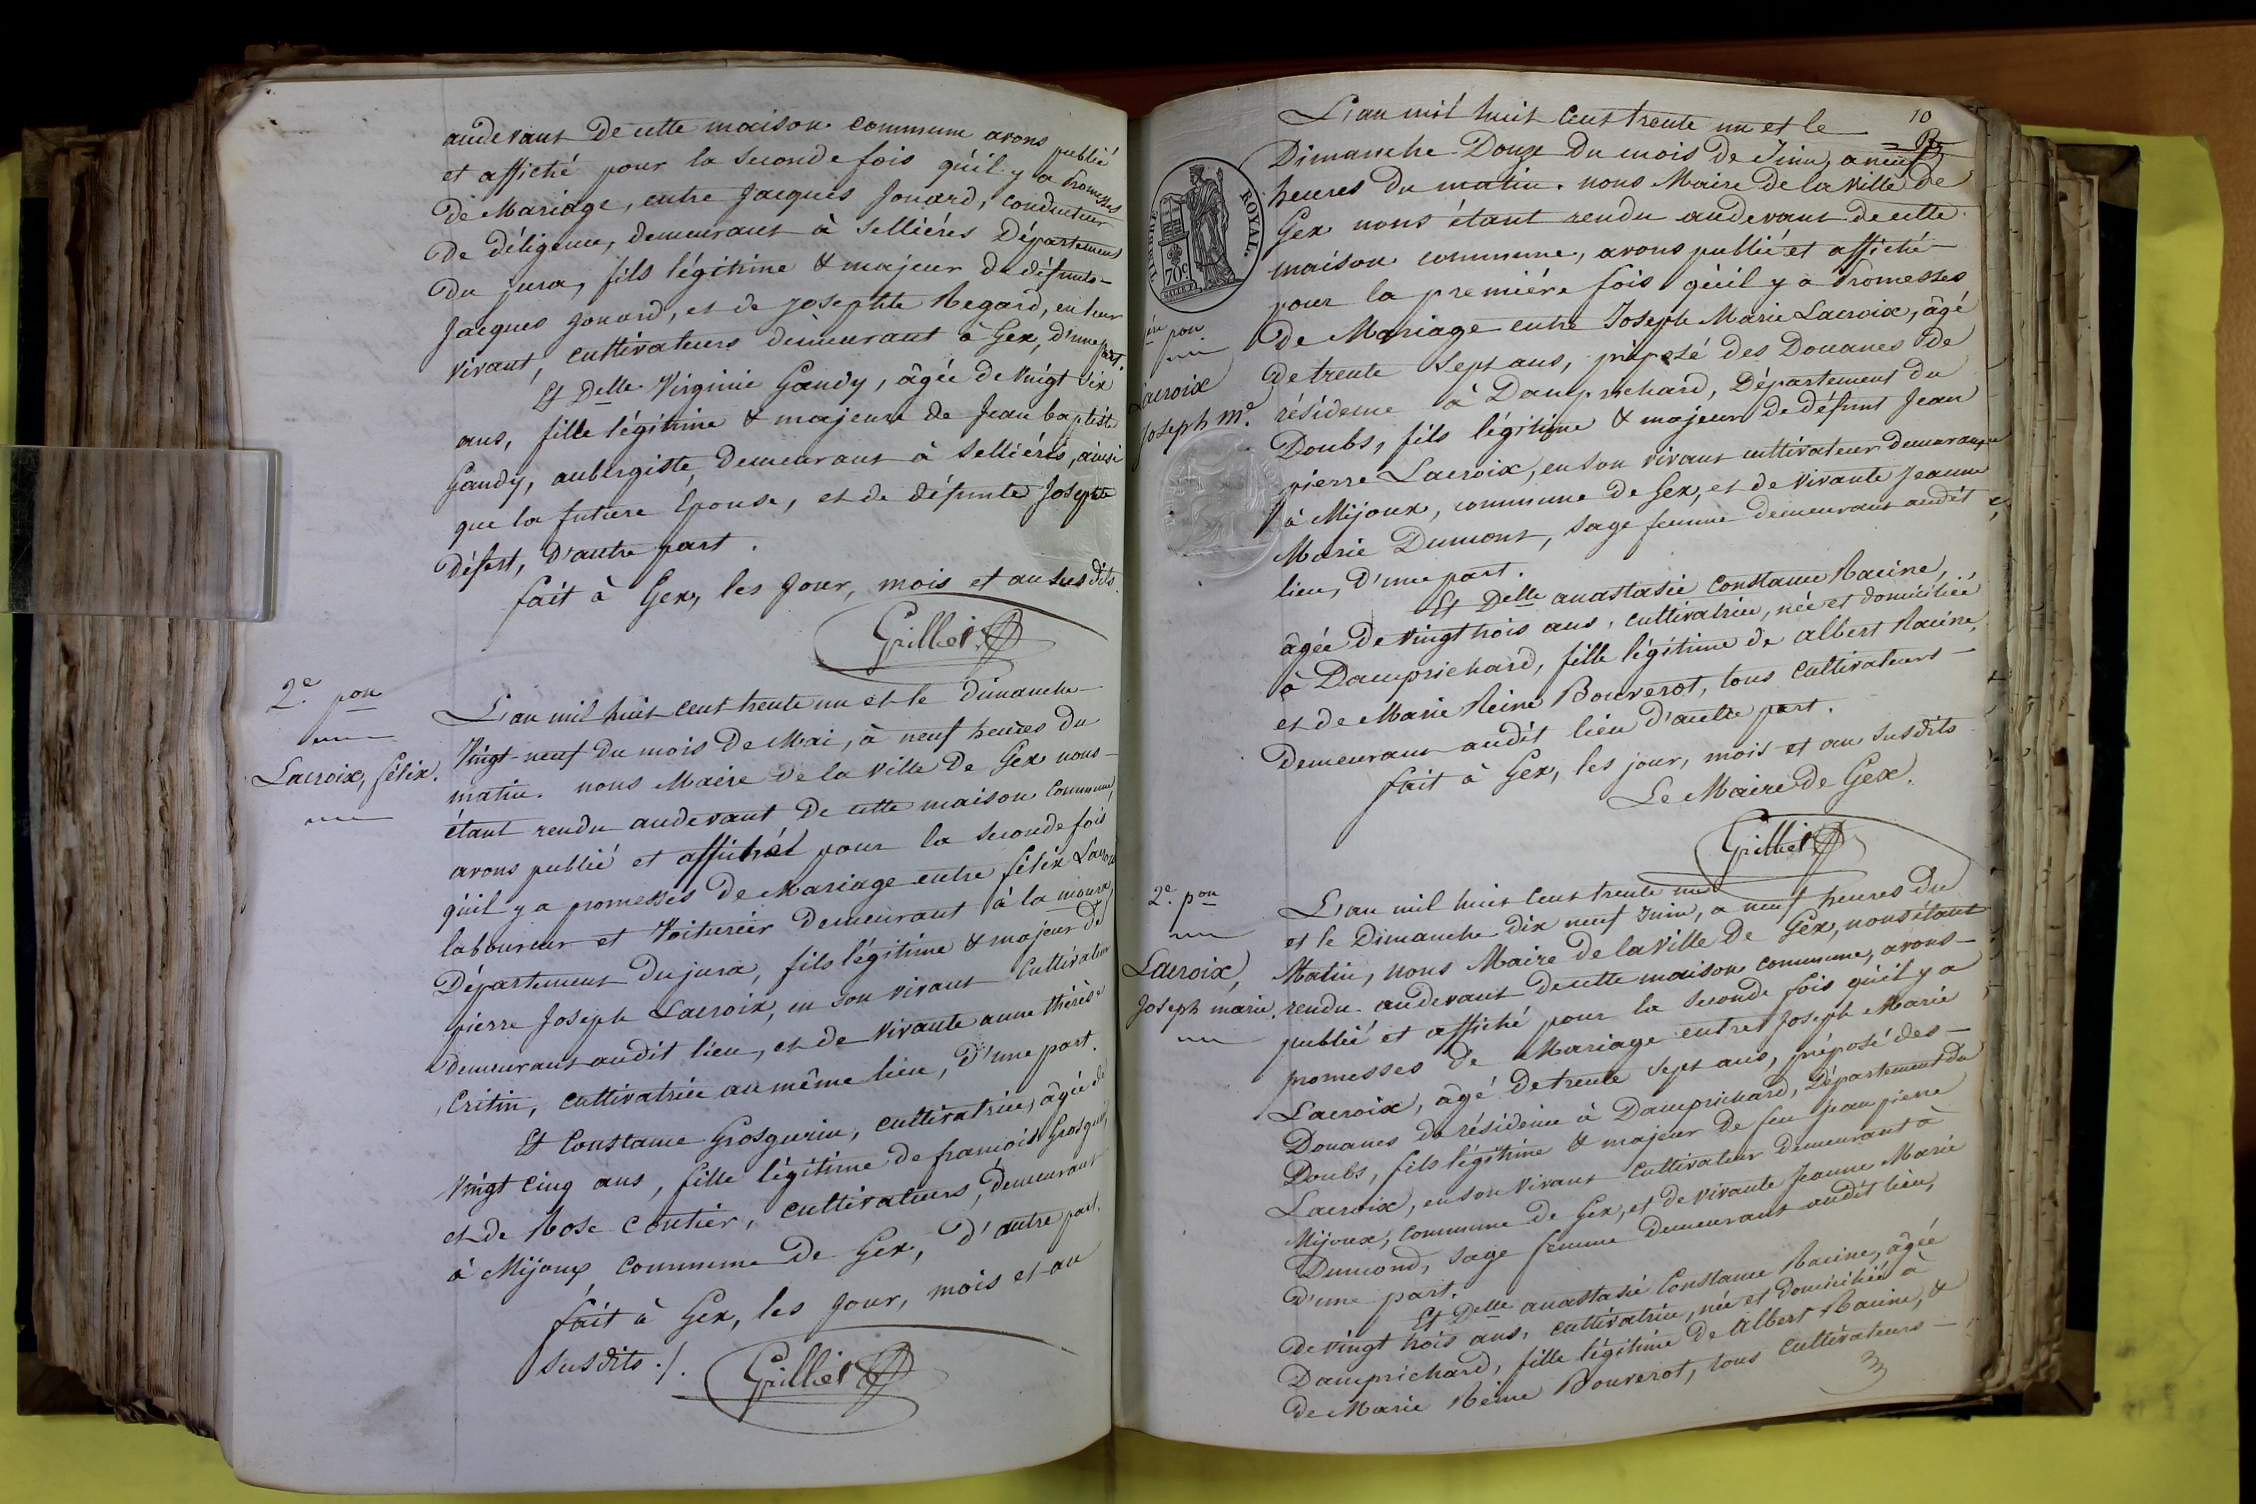 audevant de cette maison commune avons publié
et affiché pour la seconde fois qu'il y a Promesses
de Mariage, entre Jacques Jonard, conducteur
de déligence, demeurant à Sellières Département
du jura, fils légitime & majeur de défunts
Jacques Jonard, et de Josephte Regard, en leur
vivant, cultivateurs demeurant à Gex, d'une part.
Et Delle Virginie Gandy, âgée de vingt six
ans, fille légitime & majeure de Jean baptiste
Gandy, aubergiste, demeurant à Sellières, ainsi
que la future Epouse, et de défunte Josephte
Défert, d'autre part.
fait à Gex, les Jour, mois et an susdits.
Grillier
2e. pon
Lacroix, félix.
L'an mil huit cent trente un et le dimanche
Vingt-neuf du mois de Mai, à neuf heures du
matin. nous Maire de la Ville de Gex nous
étant rendu audevant de cette maison Commune,
avons publié et affiché pour la seconde fois
qu'il y a promesses de Mariage entre félix Lacroix
laboureur et Voiturier demeurant à la moura,
Département du jura, fils légitime & majeur de
pierre Joseph Lacroix, en son vivant Cultivateur
demeurant audit lieu, et de vivante anne thérèse
Critin, cultivatrice au même lieu, d'une part.
Et Constance Grosgurin, cultivatrice, âgée de
Vingt cinq ans, fille légitime de françois Grosgurin,
et de Rose Contier, cultivateurs, demeurant
à Mijoux commune de Gex, d'autre part.
fait à Gex, les Jour, mois et an
susdits ./.
Grillier
10
TIMBRE ROYAL
70c
L'an mil huit Cent trente un et le
Dimanche Douze du mois de Juin, a neuf
heures du matin. nous Maire de la Ville de
Gex nous étant rendu audevant de cette
maison commune, avons publié et affiché
pour la première fois qu'il y a Promesses
de Mariage entre Joseph Marie Lacroix, âgé
de trente sept ans, préposé des Douanes de
résidence à Damprichard, Département du
Doubs, fils légitime & majeur de défunt Jean
pierre Lacroix, en son vivant cultivateur demeurant
à Mijoux, commune de Gex, et de vivante Jeanne
Marie Dumont, sage femme demeurant audit
lieu, d'une part.
pon
Lacroix
Joseph me.
Et Delle anastasie Constance Racine,
âgée de vingt trois ans, cultivatrice, née et domiciliée
à Damprichard, fille légitime de albert Racine,
et de Marie Reine Bouverot, tous cultivateurs
demeurant audit lieu d'autre part.
fait à Gex, les jour, mois et an susdits
Le Maire de Gex.
Grillier
2e. pon
Lacroix,
Joseph marie.
L'an mil huit Cent trente un
et le Dimanche dix neuf Juin, a neuf heures du
Matin, nous Maire de la Ville de Gex, nous étant
rendu audevant de cette maison commune, avons
publié et affiché pour la seconde fois qu'il y a
promesses de Mariage entre Joseph Marie
Lacroix, âgé de trente sept ans, préposé des
Douanes de résidence à Damprichard, Département du
Doubs, fils légitime & majeur de feu jean pierre
Lacroix, en son vivant Cultivateur demeurant à
Mijoux, commune de Gex, et de vivante Jeanne Marie
Dumond, sage femme demeurant audit lieu,
d'une part.
Et Delle anastasie Constance Racine, âgée
de vingt trois ans, cultivatrice, née et domiciliée à
Damprichard, fille légitime de Albert Racine, &
de Marie Reine Bouverot, tous cultivateurs